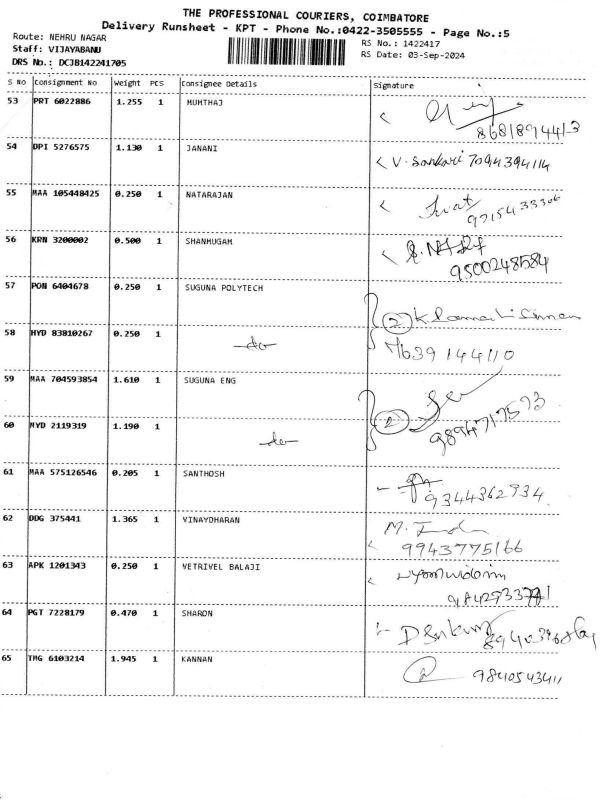 THE PROFESSIONAL COURIERS, COIMBATORE
Delivery Runsheet - KPT - Phone No.:0422-3505555 - Page No.:5
Route: NEHRU NAGAR
RS No.: 1422417
Staff: VIJAYABANU
RS Date: 03-Sep-2024
DRS No.: DCJB142241705
S No Consignment No Weight PCS Consignee Details Signature
53 PRT 6022886 1.255 1 MUMTHAJ
54 DPI 5276575 1.130 1 JANANI
V. Sankari 7094394114
55 MAA 105448425 0.250 1 NATARAJAN
9715433306
56 KRN 3200002 0.500 1 SHANMUGAM
9500248584
57 PON 6404678 0.250 1 SUGUNA POLYTECH
2
58 HYD 83810267 0.250 1 -do-
7639144110
59 MAA 704593854 1.610 1 SUGUNA ENG
2
9894717573
60 MYD 2119319 1.190 1 -do-
61 MAA 575126546 0.205 1 SANTHOSH
9344362934
62 DDG 375441 1.365 1 VINAYDHARAN
9943775166
63 APK 1201343 0.250 1 VETRIVEL BALAJI
64 PGT 7228179 0.470 1 SHARON
65 TMG 6103214 1.945 1 KANNAN
9840543411